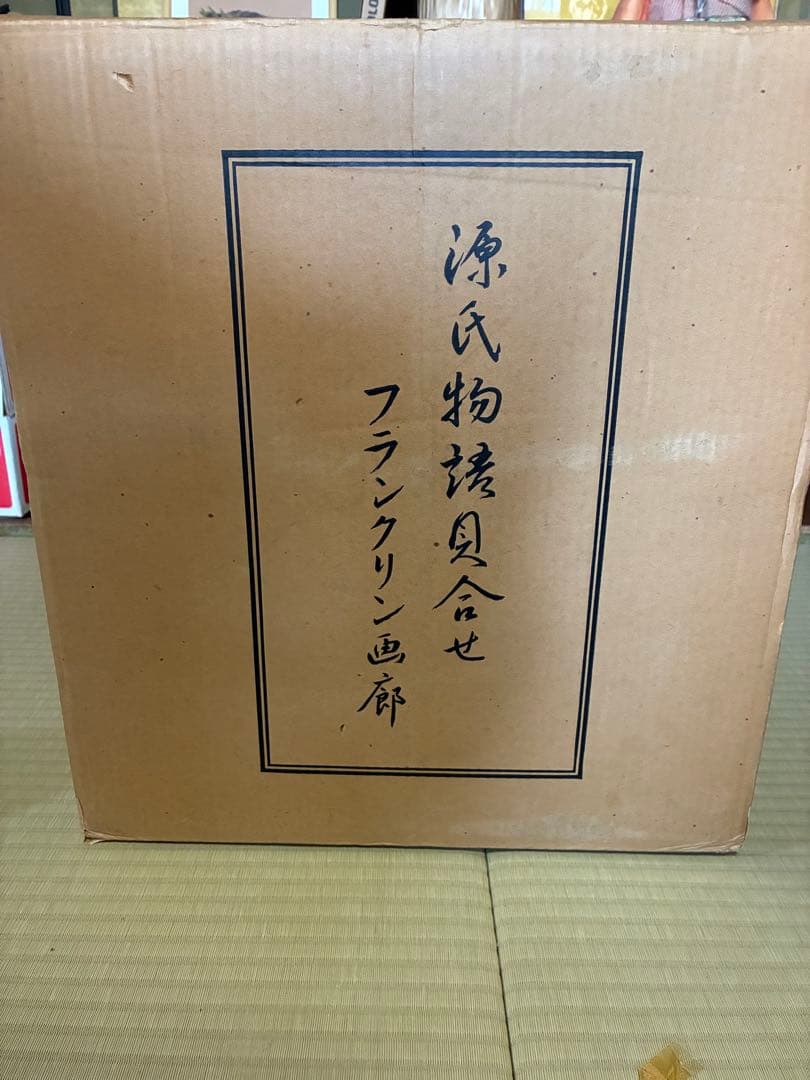 源氏物語貝合せ
フランクリン画廊